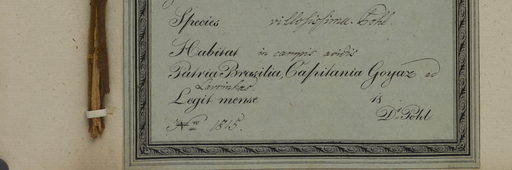 Species villosissima. Pohl
Habitat in campis aridis
Patria Brazilia, Capitania Goyaz ad
Legit mense 18
Dr. Pohl
No 1815.